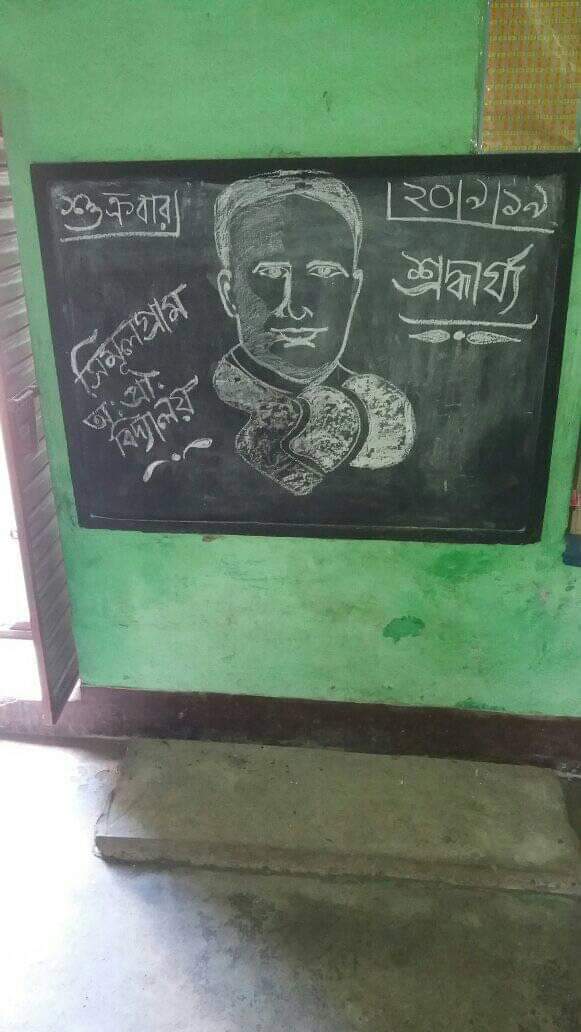 শুক্রবার
২০|৯|১৯
শ্রদ্ধার্ঘ্য
সিমূলগ্রাম
অ. প্রা.
বিদ্যালয়